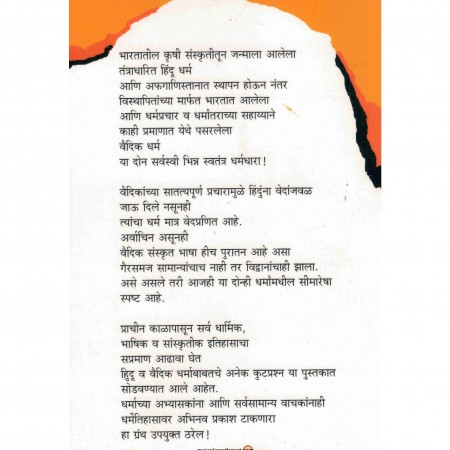 भारतातील कृषी संस्कृतीतून जन्माला आलेला
तंत्राधारित हिंदू धर्म
आणि अफगाणिस्तानात स्थापन होऊन नंतर
विस्थापितांच्या मार्फत भारतात आलेला
आणि धर्मप्रचार व धर्मांतराच्या सहाय्याने
काही प्रमाणात येथे पसरलेला
वैदिक धर्म
या दोन सर्वस्वी भिन्न स्वतंत्र धर्मधारा!
वैदिकांच्या सातत्यपूर्ण प्रचारामुळे हिंदुंना वेदांजवळ
जाऊ दिले नसूनही
त्यांचा धर्म मात्र वेदप्रणित आहे.
अर्वाचिन असूनही
वैदिक संस्कृत भाषा हीच पुरातन आहे असा
गैरसमज सामान्यांचाच नाही तर विद्वानांचाही झाला.
असे असले तरी आजही या दोन्ही धर्मांमधील सीमारेषा
स्पष्ट आहे.
प्राचीन काळापासून सर्व धार्मिक,
भाषिक व सांस्कृतीक इतिहासाचा
सप्रमाण आढावा घेत
हिंदू व वैदिक धर्माबाबतचे अनेक कुटप्रश्न या पुस्तकात
सोडवण्यात आले आहेत.
धर्माच्या अभ्यासकांना आणि सर्वसामान्य वाचकांनाही
धर्मेतिहासावर अभिनव प्रकाश टाकणारा
हा ग्रंथ उपयुक्त ठरेल!